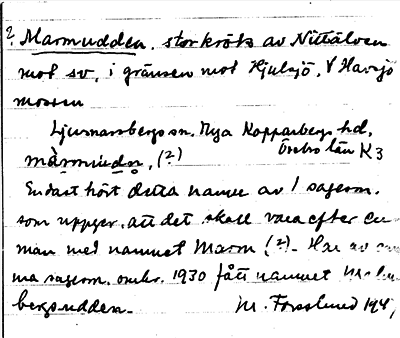 ? Marmudden, storkrök av Nittälven
mot sv, i gränsen mot Hjulsjö, V Havsjö
mossen
Ljusnarsbergs sn. Nya Kopparbergs hd,
Örebro län K3
màrmùdn, (?)
Endast hört detta namn av 1 sagesm.
som uppger, att det skall vara efter en
man med namnet Marm (?). Har av
ma sagesm. omkr. 1930 fått namnet
bergsudden. M. Forslund